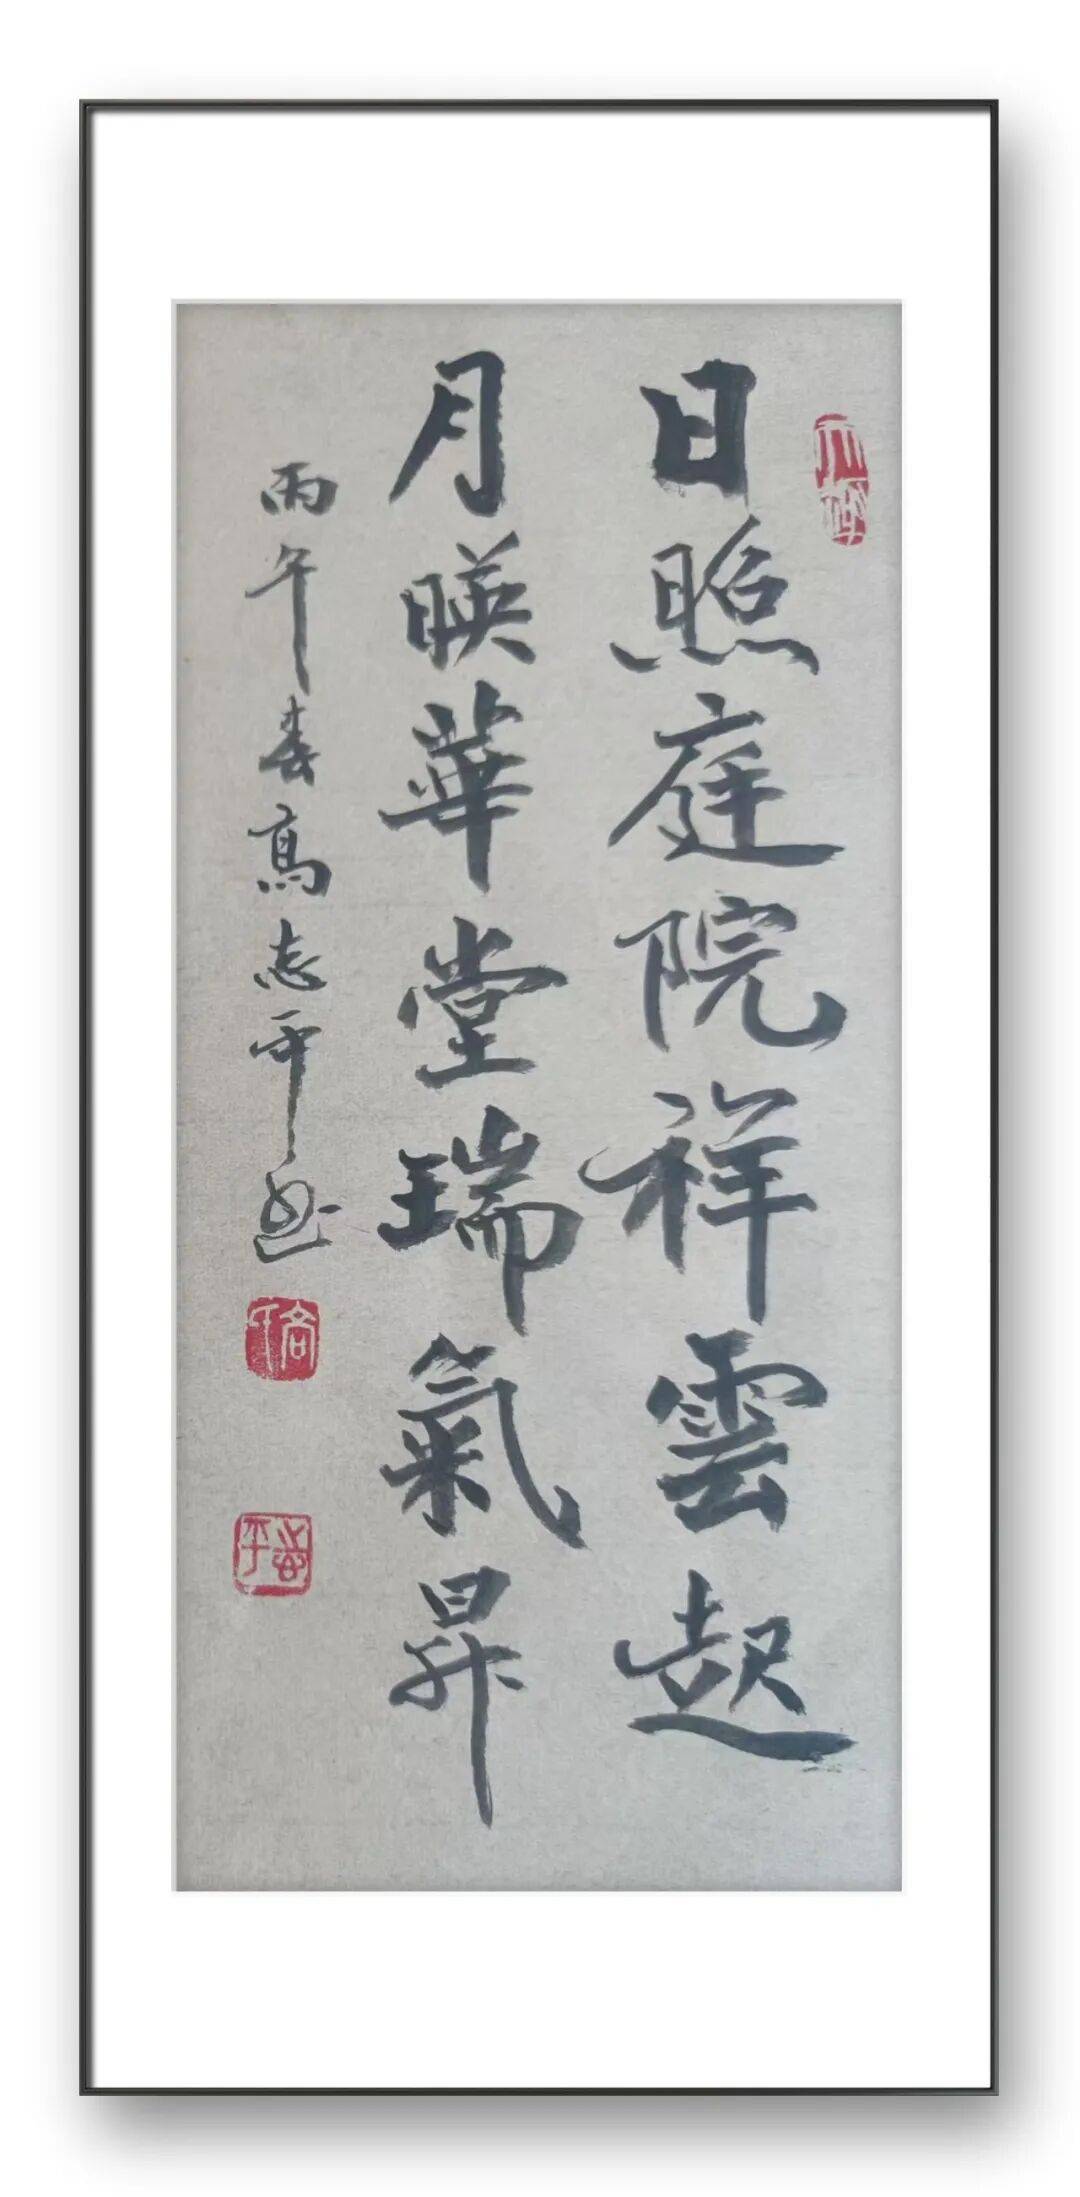 日照庭院祥雲起
月暎華堂瑞氣昇
丙午春高志平書
志平